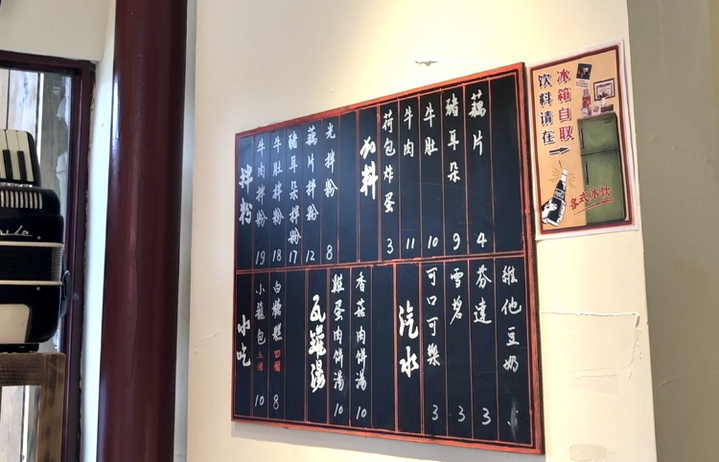 拌粉
牛肉拌粉 19
牛肚拌粉 18
豬耳朵拌粉 17
藕片拌粉 12
光拌粉 8
加料
荷包炸蛋 3
牛肉 11
牛肚 10
豬耳朵 9
藕片 4
小吃
小籠包 10
白糖糕 四個 8
瓦罐湯
雞蛋肉饼湯 10
香菇肉饼湯 10
汽水
可口可樂 3
雪碧 3
芬達 3
維他豆奶
饮料请在
冰箱自取
各式冰饮